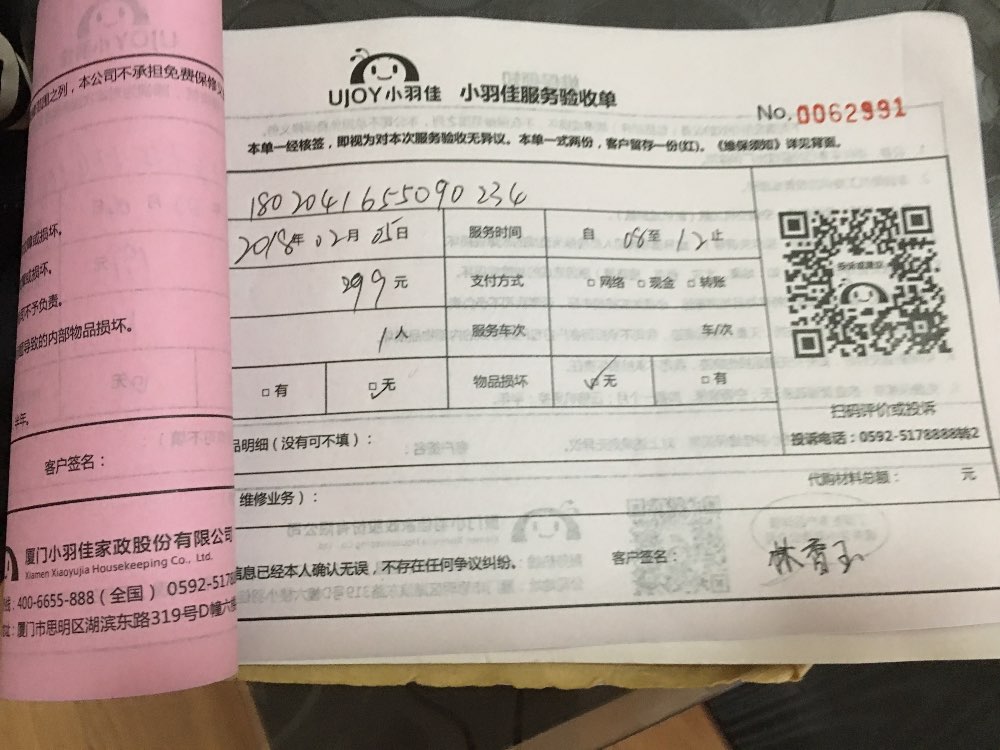 UJOY小羽佳 小羽佳服务验收单
No.0062991
本单一经核签，即视为对本次服务验收无异议。本单一式两份，客户留存一份(红)。《维保须知》详见背面。
180204165509 0234
2018年02月05日 服务时间 自 08至12止
299元 支付方式 □网络 □现金 □转账
1人 服务车次 车/次
□有 □无 物品损坏 □无 □有
投诉或建议
扫码评价或投诉
投诉电话：0592-5178888转2
品明细（没有可不填）：
代购材料总额： 元
维修业务）：
信息已经本人确认无误，不存在任何争议纠纷。 客户签名：
范围之列，本公司不承担免费保修义
或损坏。
或损坏。
不予负责。
导致的内部物品损坏。
半年。
客户签名：
厦门小羽佳家政股份有限公司
Xiamen Xiaoyujia Housekeeping Co., Ltd.
400-6655-888（全国）0592-5178
厦门市思明区湖滨东路319号D幢六楼